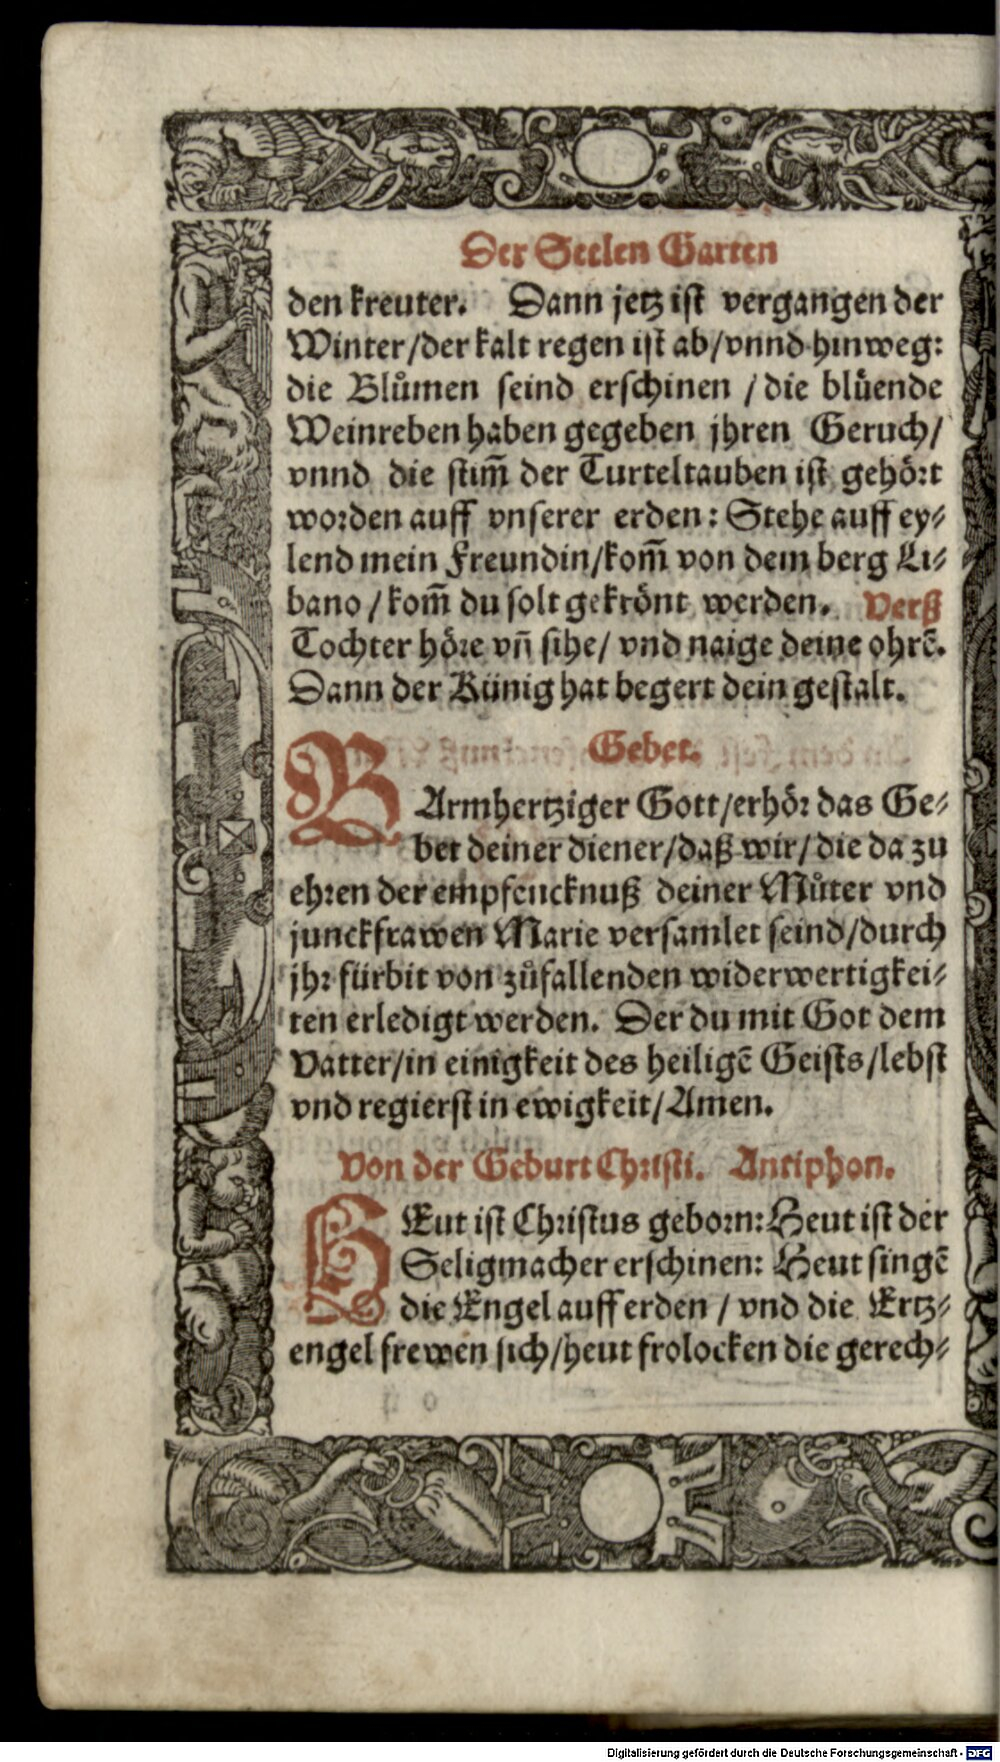 Der Seelen Garten
den kreuter. Dann jetz ist vergangen der
Winter/der kalt regen ist ab/vnnd hinweg:
die Blůmen seind erschinen / die blüende
Weinreben haben gegeben jhren Geruch/
vnnd die stim̃ der Turteltauben ist gehört
worden auff vnserer erden: Stehe auff ey⸗
lend mein Freundin/kom̃ von dem berg Li⸗
bano / kom̃ du solt gekrönt werden. Verß
Tochter höre vñ sihe/ vnd naige deine ohrẽ.
Dann der Künig hat begert dein gestalt.
Gebet.
BArmhertziger Gott/erhör das Ge⸗
bet deiner diener/daß wir/ die da zu
ehren der empfencknuß deiner Můter vnd
junckfrawen Marie versamlet seind/durch
jhr fürbit von zůfallenden widerwertigkei⸗
ten erledigt werden. Der du mit Got dem
Vatter/in einigkeit des heiligẽ Geists/lebst
vnd regierst in ewigkeit/Amen.
Von der Geburt Christi. Antiphon.
HEut ist Christus geborn: Heut ist der
Seligmacher erschinen: Heut singẽ
die Engel auff erden / vnd die Ertz⸗
engel frewen sich/heut frolocken die gerech⸗
Digitalisierung gefördert durch die Deutsche Forschungsgemeinschaft - DFG